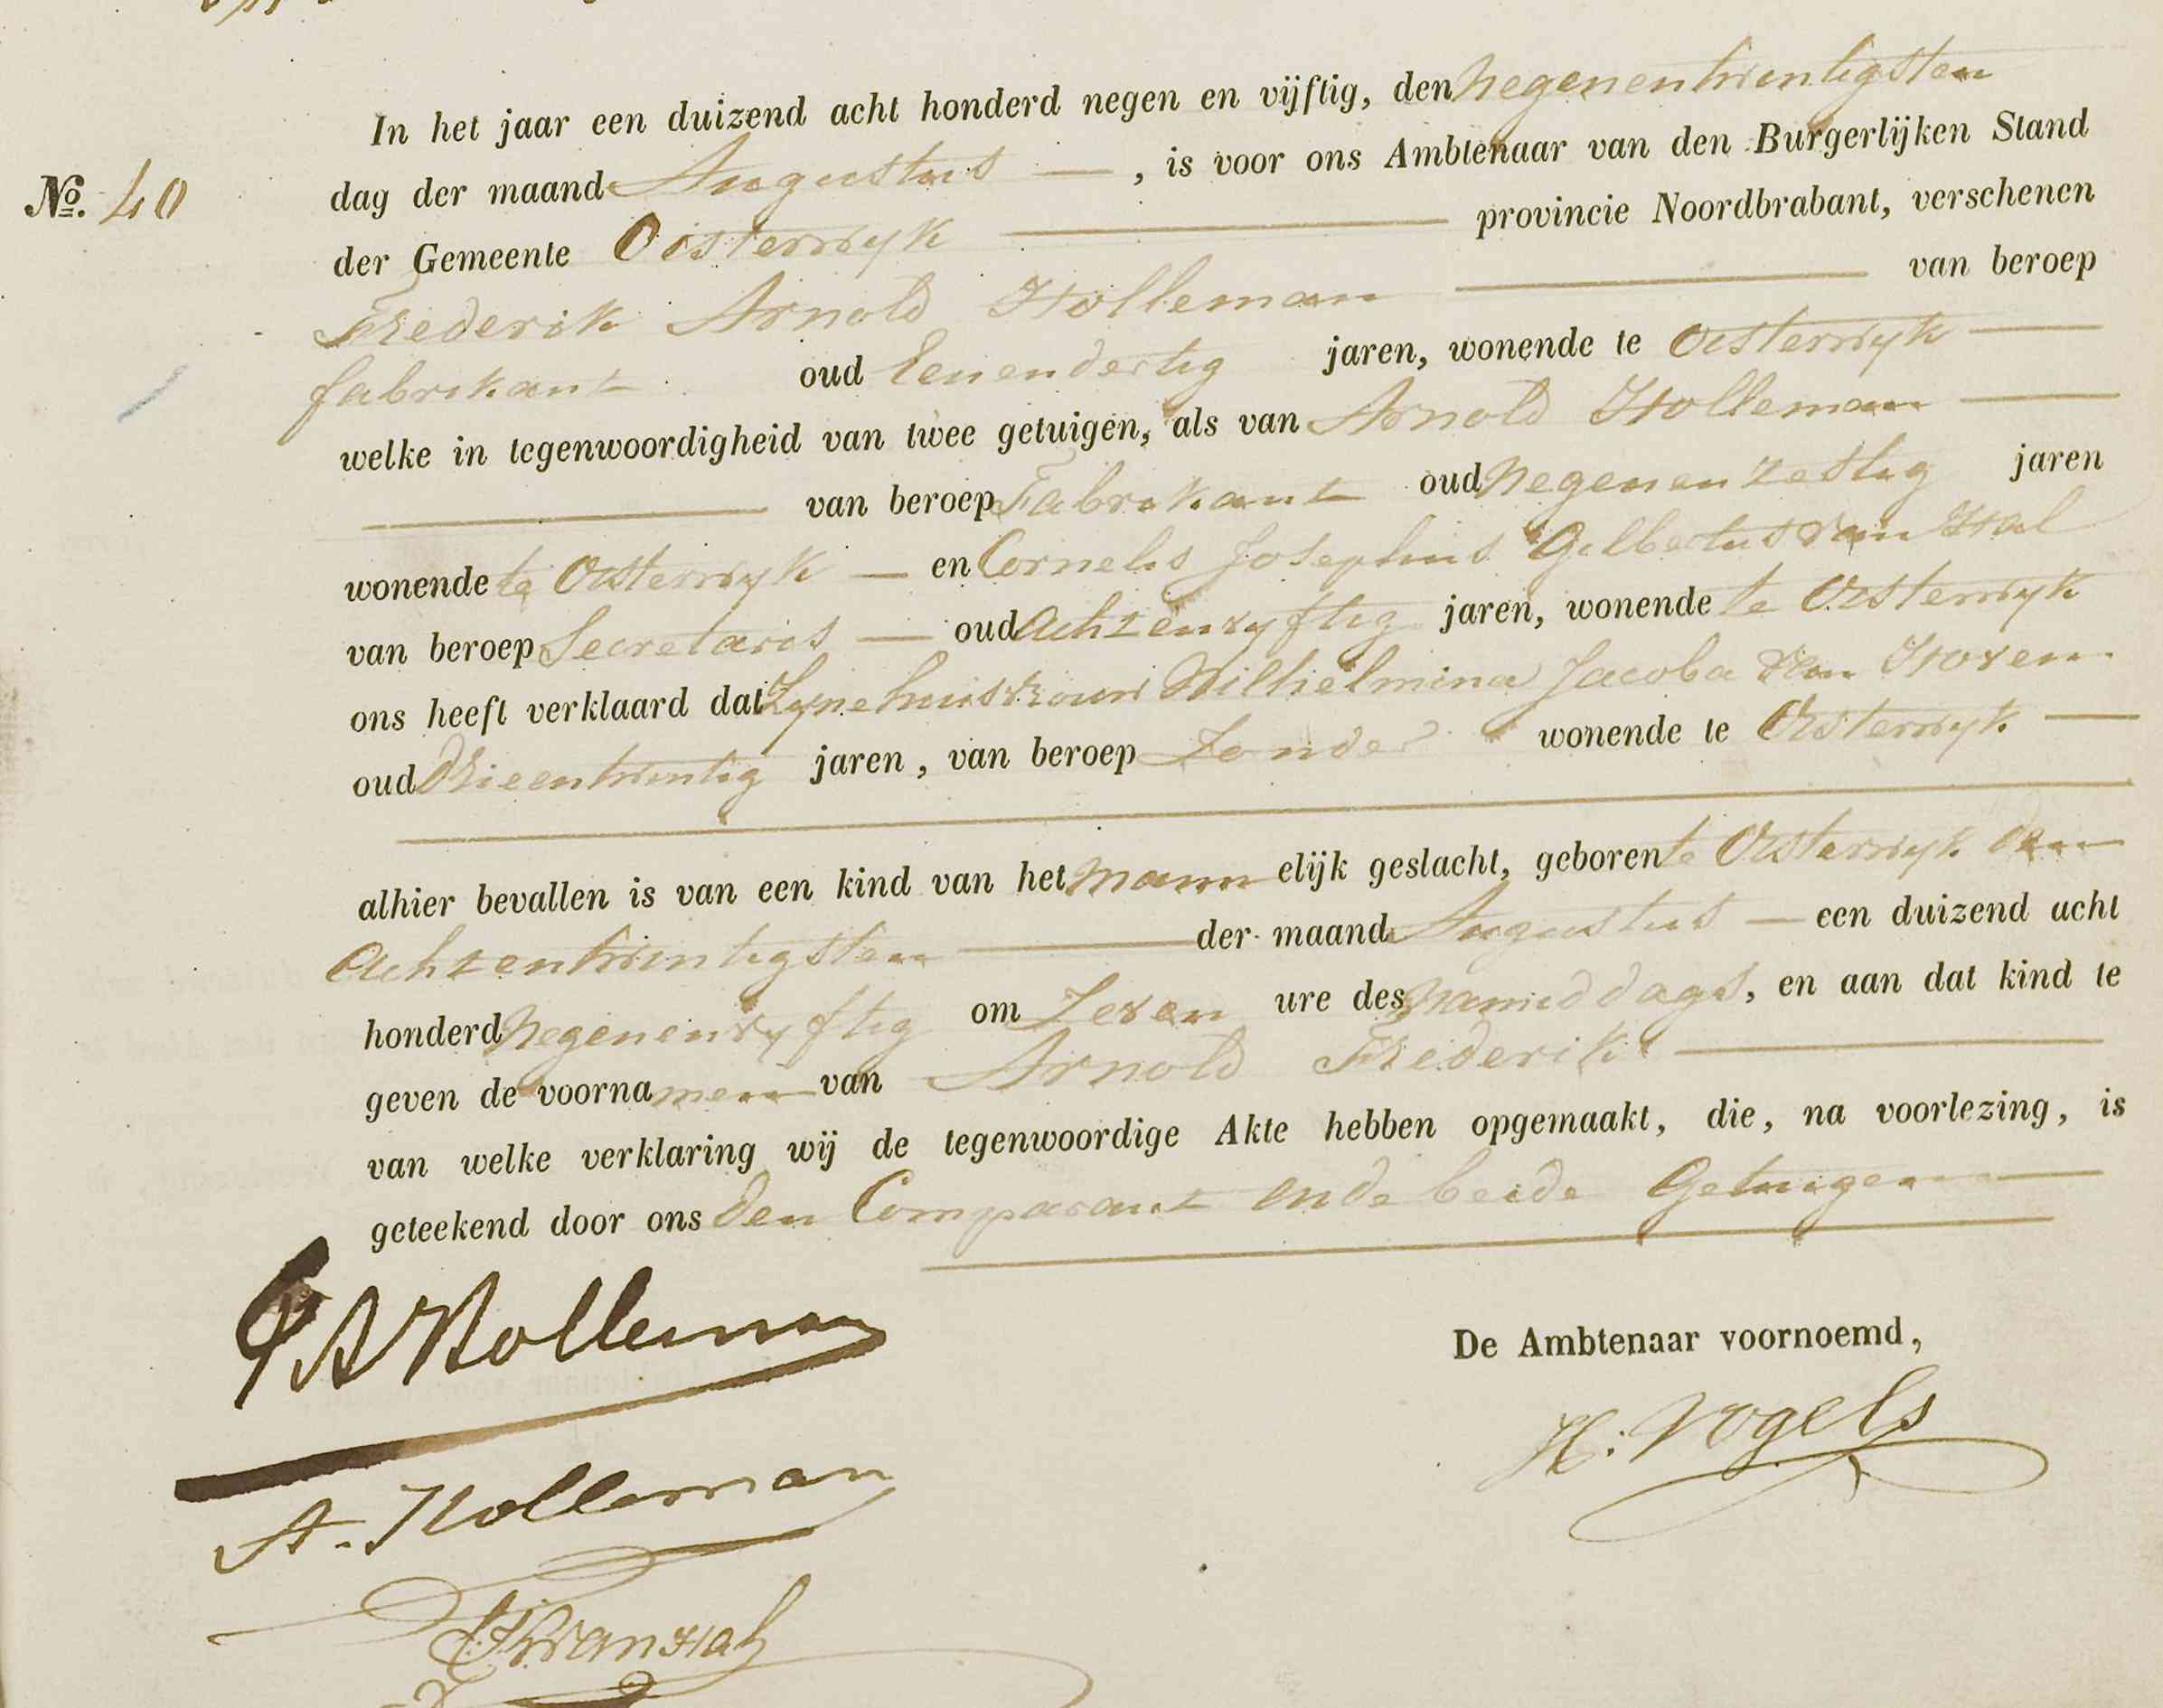 In het jaar een duizend acht honderd negen en vijftig, den negenentwintigsten
dag der maand Augustus —, is voor ons Ambtenaar van den Burgerlijken Stand
No. 40
der Gemeente Oisterwyk — provincie Noordbrabant, verschenen
Frederik Arnold Holleman — van beroep
fabrikant oud Eenendertig jaren, wonende te Oisterwyk —
welke in tegenwoordigheid van twee getuigen, als van Arnold Holleman —
— van beroep Fabrikant oud negenenzestig jaren
wonende te Oisterwyk — en Cornelis Josephus Gilbertus van Hal
van beroep Secretaris — oud achtenvyftig jaren, wonende te Oisterwyk
ons heeft verklaard dat Zyne huisvrouw Wilhelmina Jacoba van Hoven
oud Drieentwintig jaren, van beroep Zonder wonende te Oisterwyk —
alhier bevallen is van een kind van het mann elijk geslacht, geboren te Oisterwyk den
Achtentwintigsten — der maand Augustus — een duizend acht
honderd negenenvyftig om Zeven ure des namiddags, en aan dat kind te
geven de voornamen van Arnold Frederik —
van welke verklaring wij de tegenwoordige Akte hebben opgemaakt, die, na voorlezing, is
geteekend door ons den Comparant en de beide Getuigen —
F A Holleman
De Ambtenaar voornoemd,
H: Vogels
A. Holleman